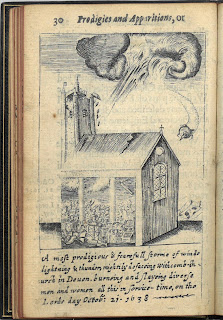 30 Prodigies and Apparitions, or
A most prodigious & fearefull storme of winde
lightning & thunder, mightily defacing Withcomb-ch-
urch in Devon, burning and slayeing diverse
men and women all this in service-time, on the
Lords day Octob: 21. 1638